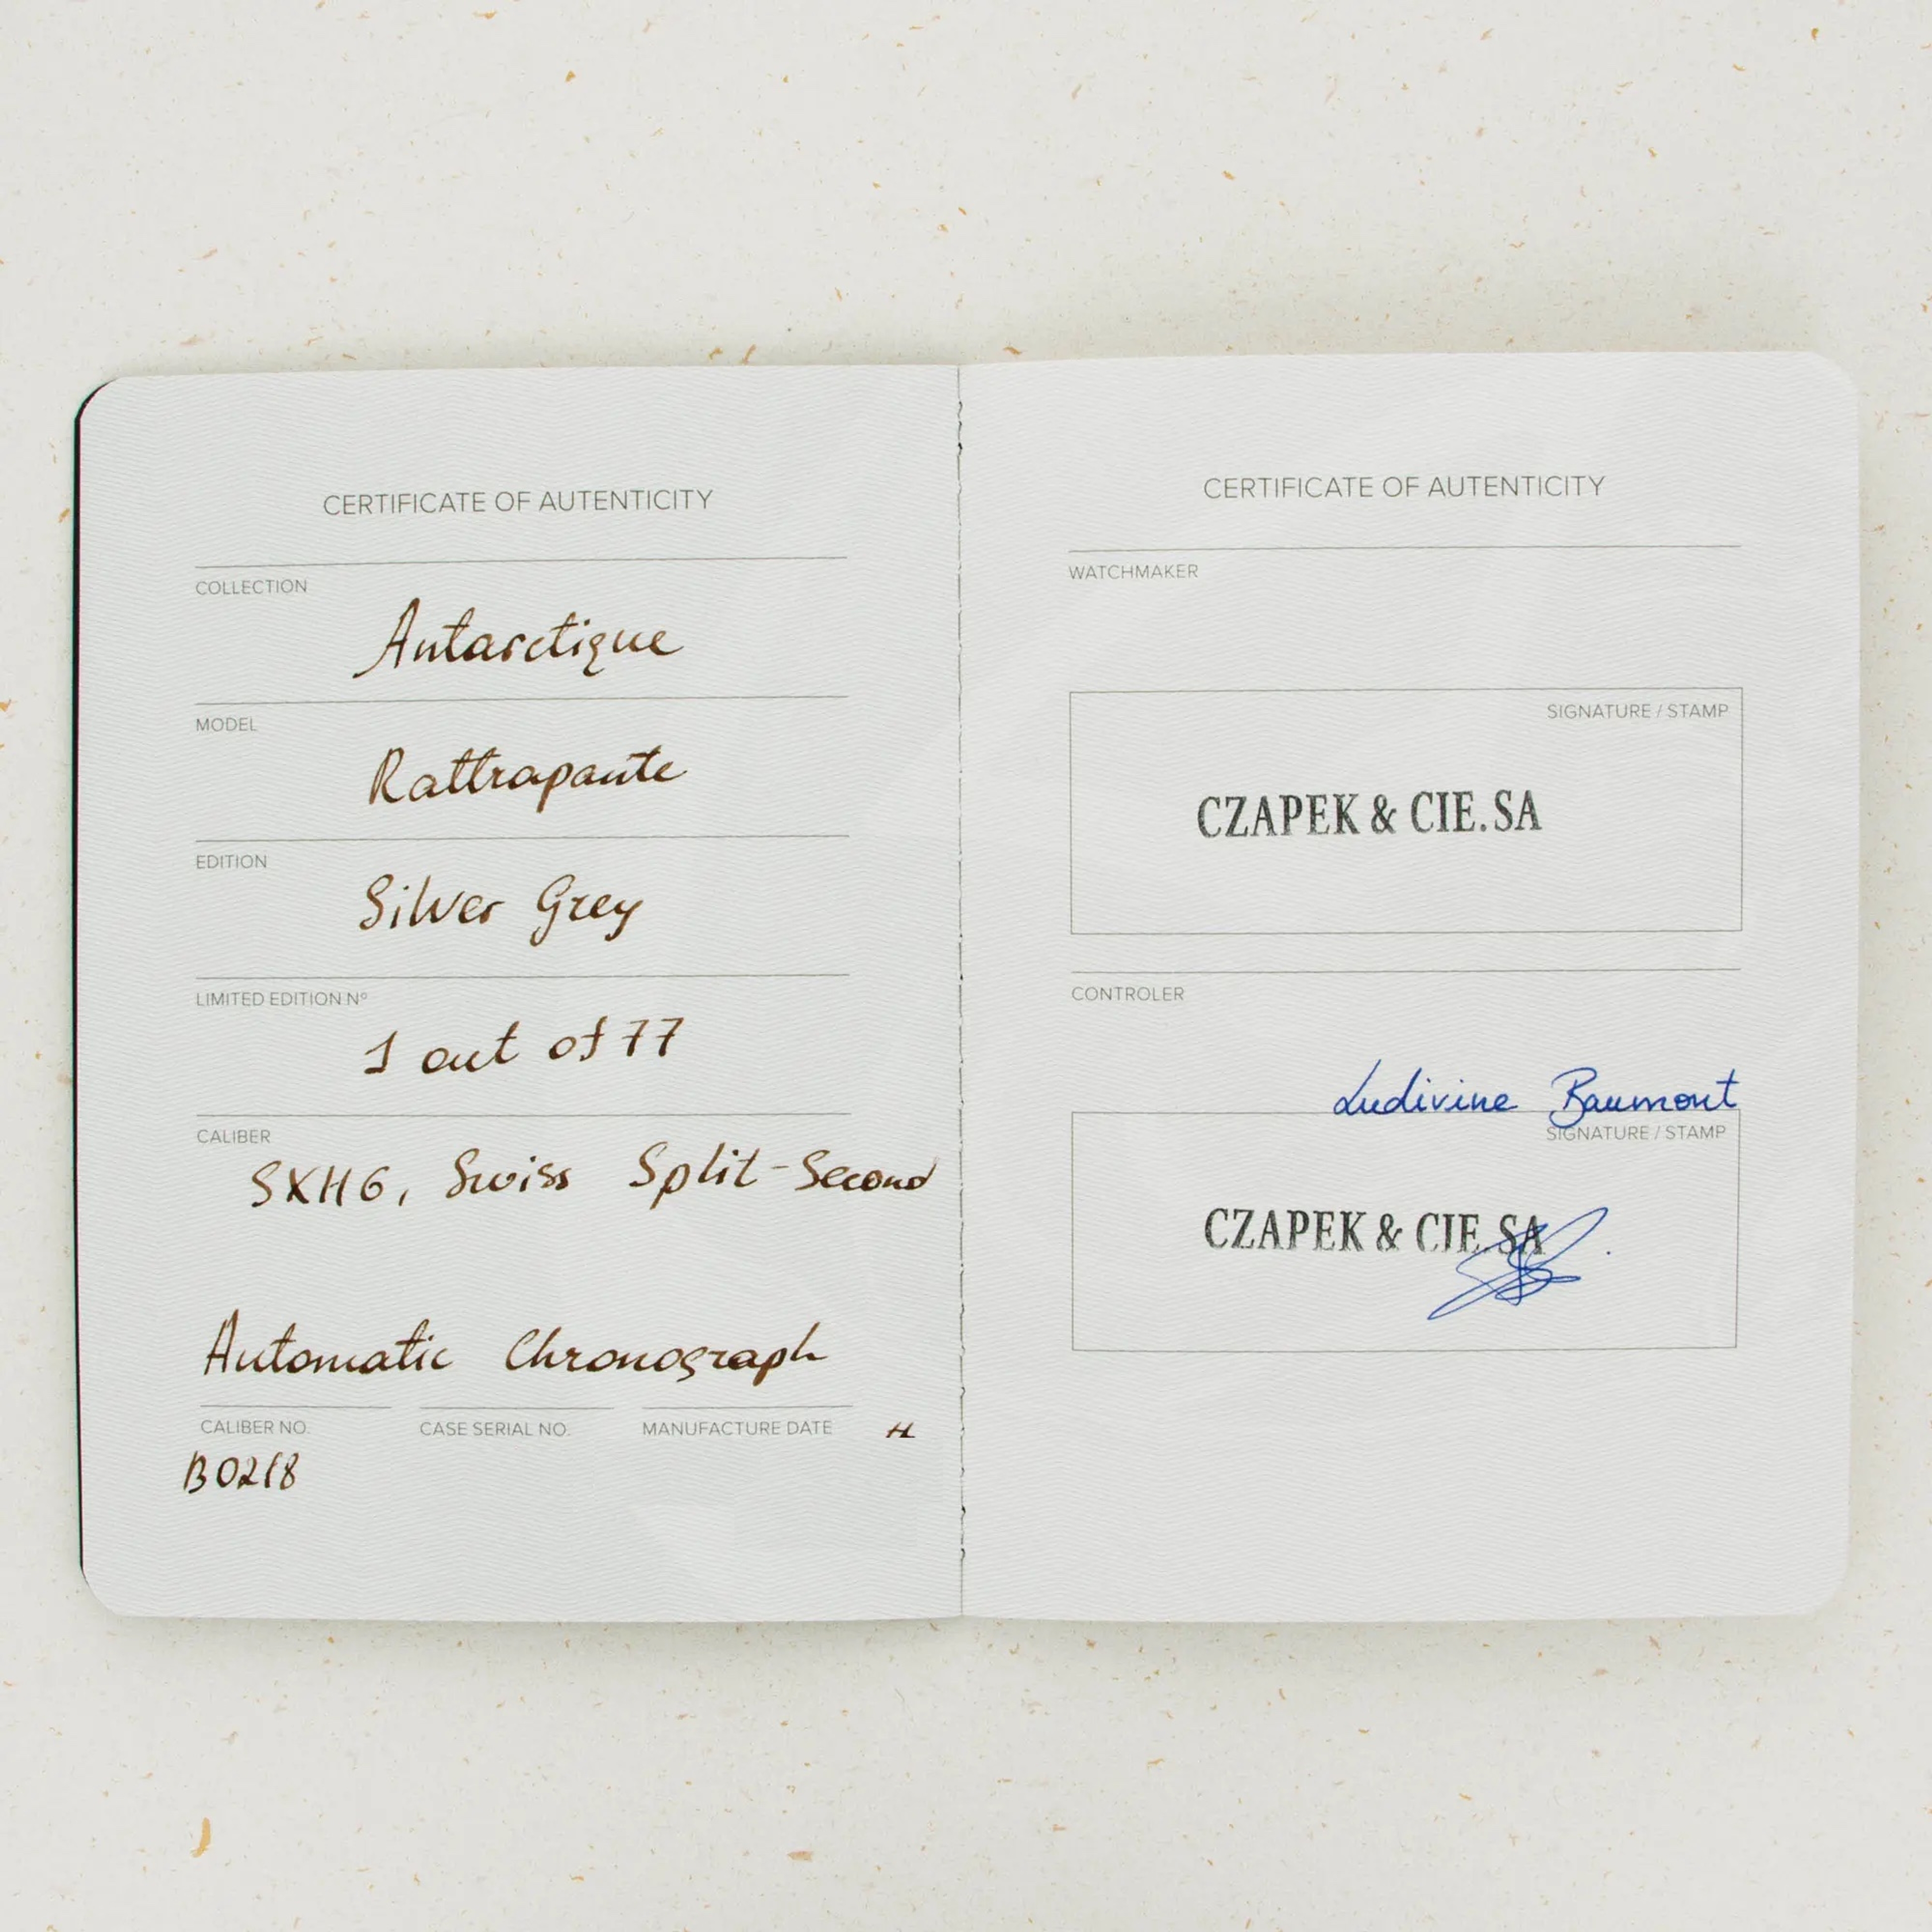 CERTIFICATE OF AUTENTICITY
COLLECTION
Antarctique
MODEL
Rattrapante
EDITION
Silver Grey
LIMITED EDITION Nº
1 out of 77
CALIBER
SXH6, Swiss Split-Second
Automatic Chronograph
CALIBER NO. CASE SERIAL NO. MANUFACTURE DATE
B0218
CERTIFICATE OF AUTENTICITY
WATCHMAKER
SIGNATURE / STAMP
CZAPEK & CIE.SA
CONTROLER
Ludivine Baumont
SIGNATURE / STAMP
CZAPEK & CIE.SA